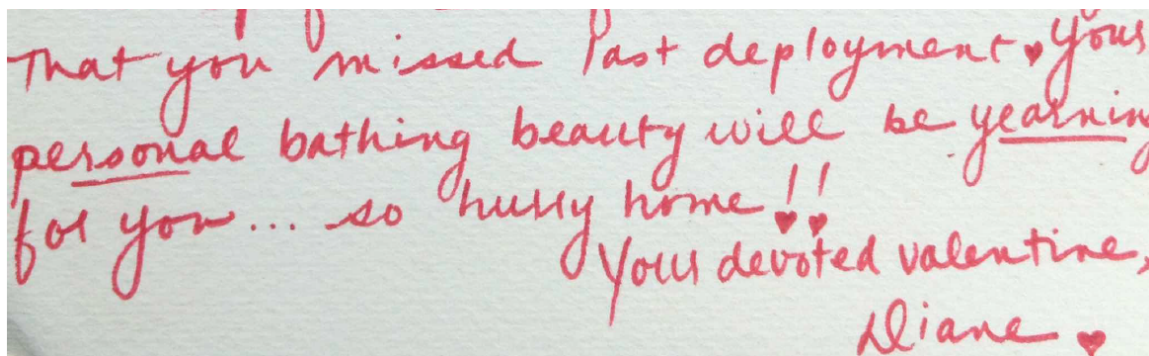 That you missed last deployment. Your
personal bathing beauty will be yearning
for you... so hurry home!!
Your devoted valentine,
Diane